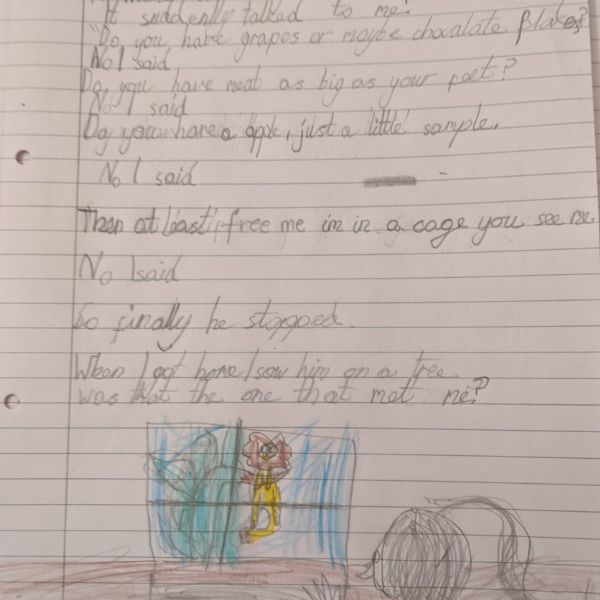 It suddenly talked to me!
"Do, you have grapes or maybe chocalate flakes?
No I said
Do, you have meat as big as your feet?
No I said
Do, you have a apple, just a little sample.
No I said
Then at least free me im in a cage you see me.
No I said
So finally he stopped.
When I got home I saw him on a tree
was that the one that met me?